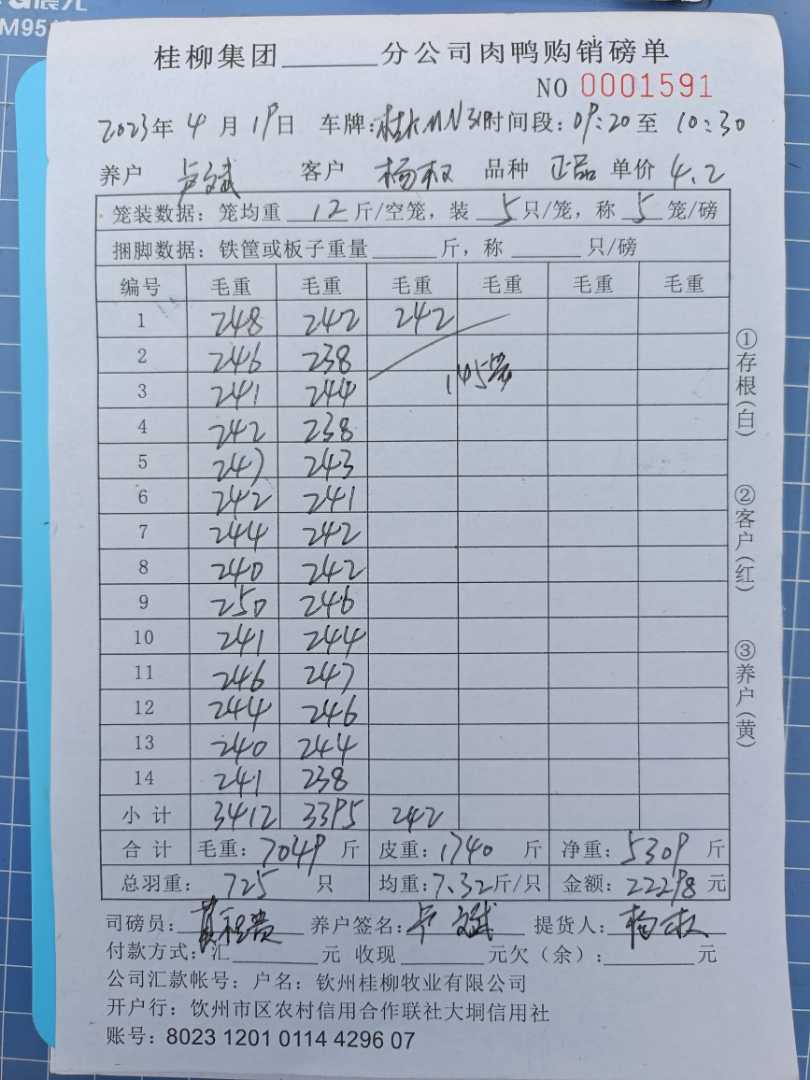 M95
桂柳集团______分公司肉鸭购销磅单
NO 0001591
2023年 4 月 19日 车牌: 时间段: 09:20 至 10:30
养户 卢文斌 客户 杨权 品种 正品 单价 4.2
笼装数据: 笼均重 12 斤/空笼, 装 5 只/笼, 称 5 笼/磅
捆脚数据: 铁筐或板子重量______斤, 称______只/磅
编号 毛重 毛重 毛重 毛重 毛重 毛重
1 248 242 242
2 246 238
145笼
3 241 244
4 242 238
5 247 243
6 242 241
7 244 242
8 240 242
9 250 246
10 241 244
11 246 247
12 244 246
13 240 244
14 241 238
小计 3412 3395 242
合计 毛重: 7049 斤 皮重: 1740 斤 净重: 5309 斤
总羽重: 725 只 均重: 7.32斤/只 金额: 22298 元
司磅员: 养户签名: 卢文斌 提货人: 杨权
付款方式: 汇______元 收现______元欠(余):______元
公司汇款帐号: 户名: 钦州桂柳牧业有限公司
开户行: 饮州市区农村信用合作联社大垌信用社
账号: 8023 1201 0114 4296 07
①存根(白)
②客户(红)
③养户(黄)